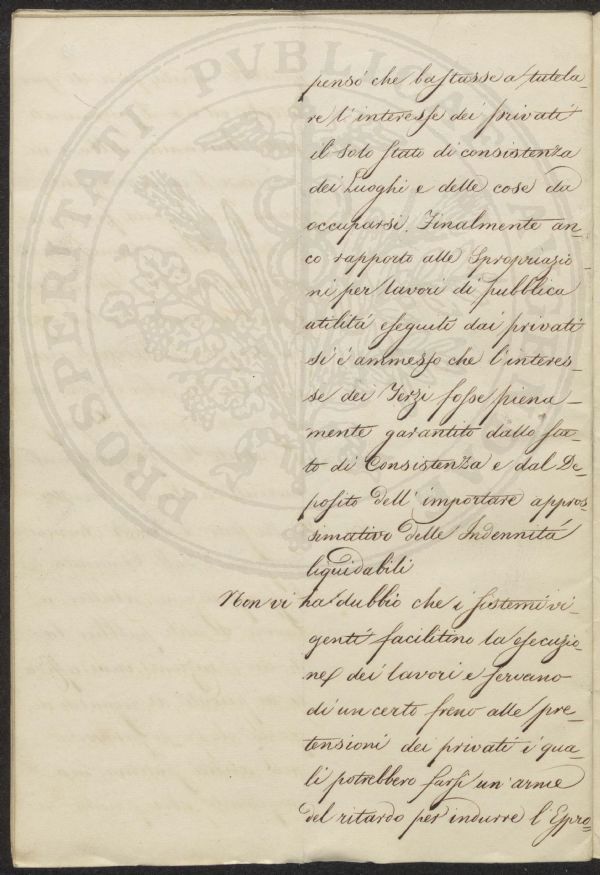 pensó che bastasse a tutela-
re l'interesse dei privati
il solo stato di consistenza
dei Luoghi e delle cose da
occuparsi. Finalmente an-
co rapporto alle Spropriazio
ni per lavori di pubblica
utilitá eseguiti dai privati
si é ammesso che l'interes-
se dei Terzi fosse piena-
mente garantito dallo sta-
to di Consistenza e dal De-
posito dell'importare appros-
simativo delle Indennitá
liquidabili
Non vi ha dubbio che i sistemi vi-
genti facilitino la esecuzio-
ne dei lavori e servano
di un certo freno alle pre-
tensioni dei privati i qua-
li potrebbero farsi un'arme
del ritardo per indurre l'Espro=
PROSPERITATI PVBLICAE